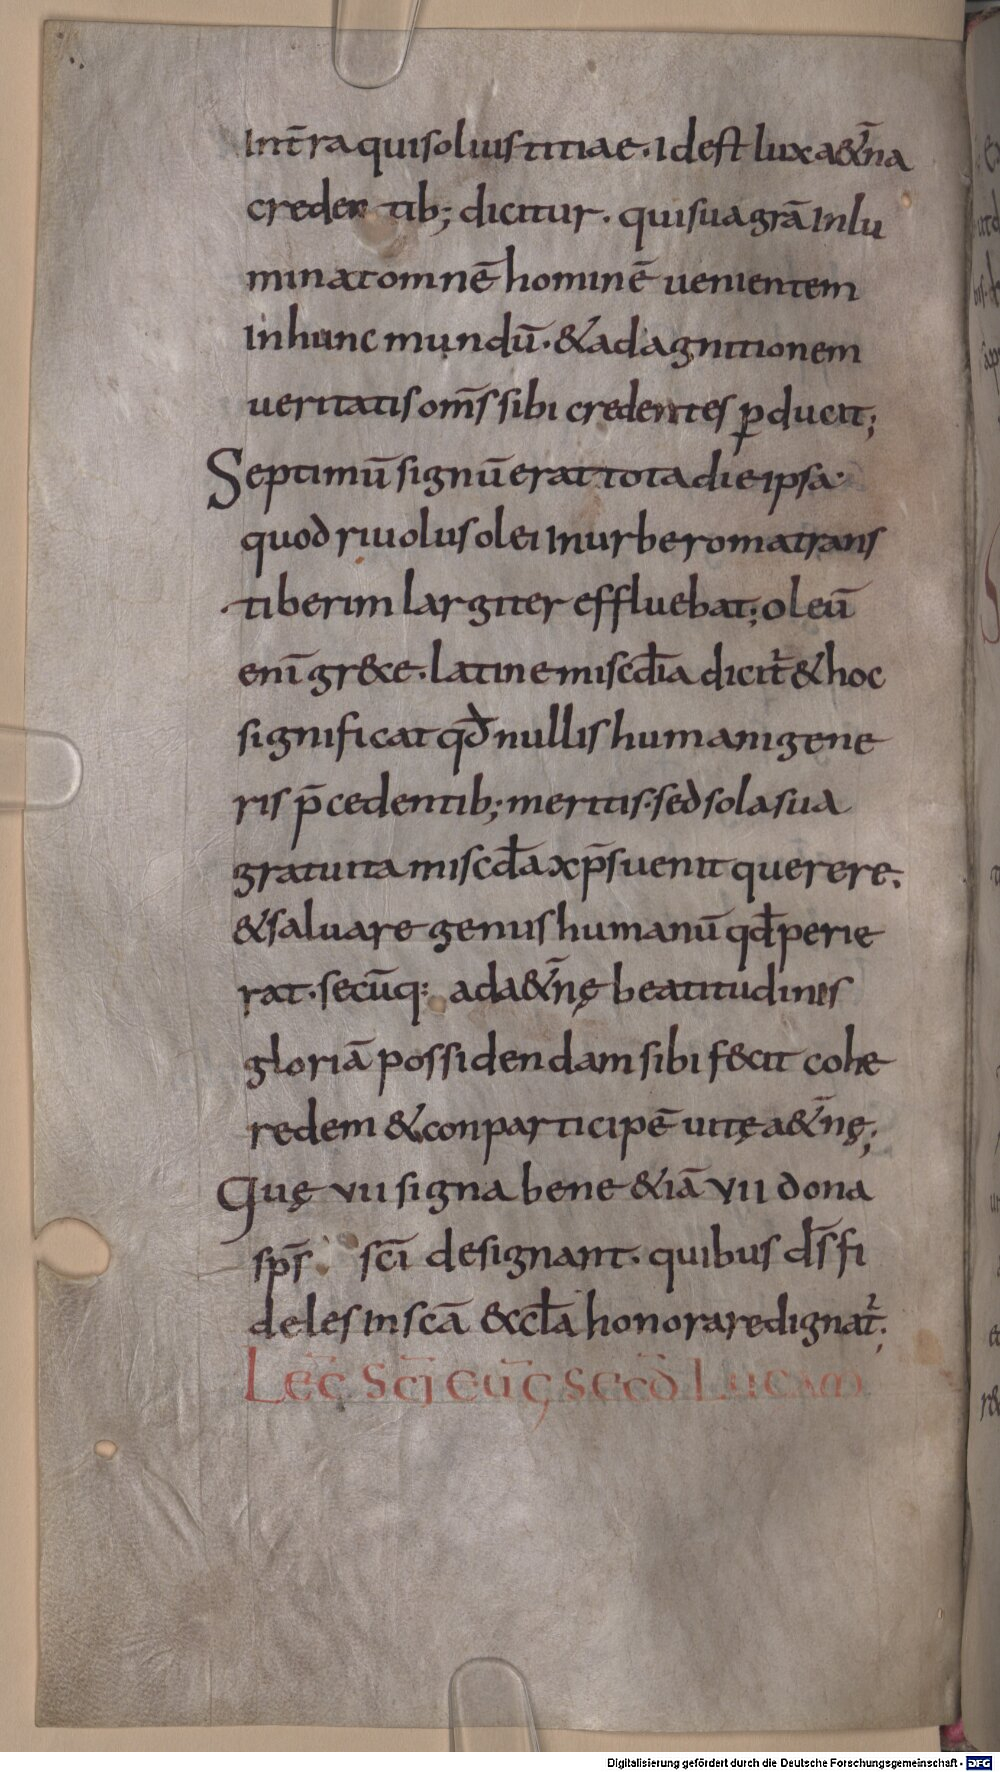 Int̄ra qui sol iustitiae. id est lux a&̄na
creden tib; dicitur. qui sua grā inlu
minat omnē hominē uenientem
in hunc mundū. & ad agnitionem
ueritatis om̄s sibi credentes ꝑducit;
Septimū signū erat tota die ipsa.
quod riuolus olei in urbe roma trans
tiberim largiter effluebat; oleū
enī gr&ce. latine misc̄dia dicit̄ & hoc
significat qđ nullis humani gene
ris p̄cedentib; meritis. sed sola sua
gratuita misc̄da xp̄s uenit querere.
& saluare genus humanū qđ perie
rat. secūq: ad a&̄nę beatitudinis
gloriā possidendam sibi fecit cohe
redem & conparticipē uitę a&̄nę;
Quę VII signa bene &iā VII dona
sp̄s sc̄i designant. quibus d̄s fi
deles in scā &cl̄a honorare dignat̄;
Lec̄ Sc̄i eūg secd̄ Lucam
Digitalisierung gefördert durch die Deutsche Forschungsgemeinschaft - DFG